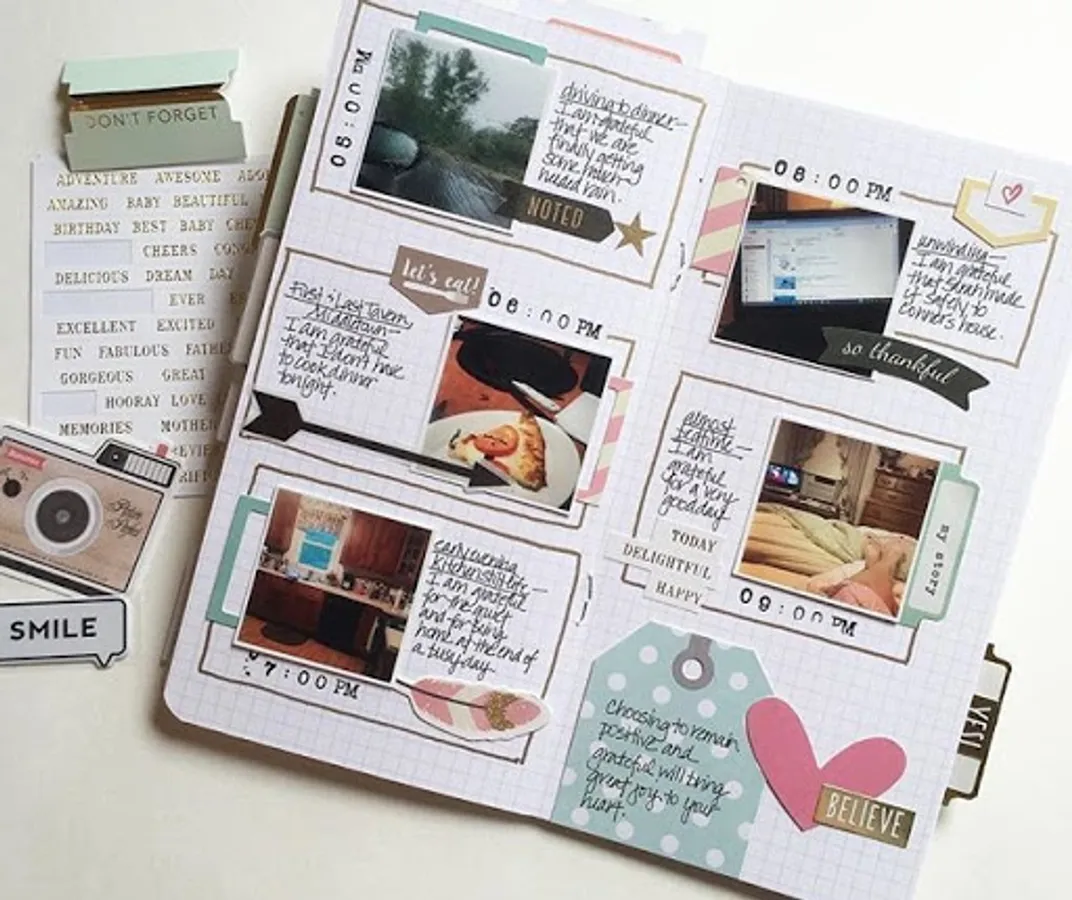 DON'T FORGET
ADVENTURE AWESOME
AMAZING BABY BEAUTIFUL
BIRTHDAY BEST BABY
CHEERS
DELICIOUS DREAM DAY
EVER
EXCELLENT EXCITED
FUN FABULOUS
GORGEOUS GREAT
HOORAY LOVE
MEMORIES MOTHER
SMILE
05:00 PM
driving to dinner—
I am grateful
that we are
finally getting
some much
needed rain.
NOTED
let's eat!
06:00 PM
First & Last Tavern,
Middletown—
I am grateful
that I don't have
to cook dinner
tonight.
early evening
kitchen still life—
I am grateful
for the quiet
and for being
home at the end of
a busy day.
07:00 PM
08:00 PM
unwinding—
I am grateful
that Sarah made
it safely to
Conner's house.
so thankful
almost
bedtime—
I am
grateful
for a very
good day.
TODAY
DELIGHTFUL
HAPPY
my story
09:00 PM
Choosing to remain
positive and
grateful will bring
great joy to your
heart.
BELIEVE
YES!